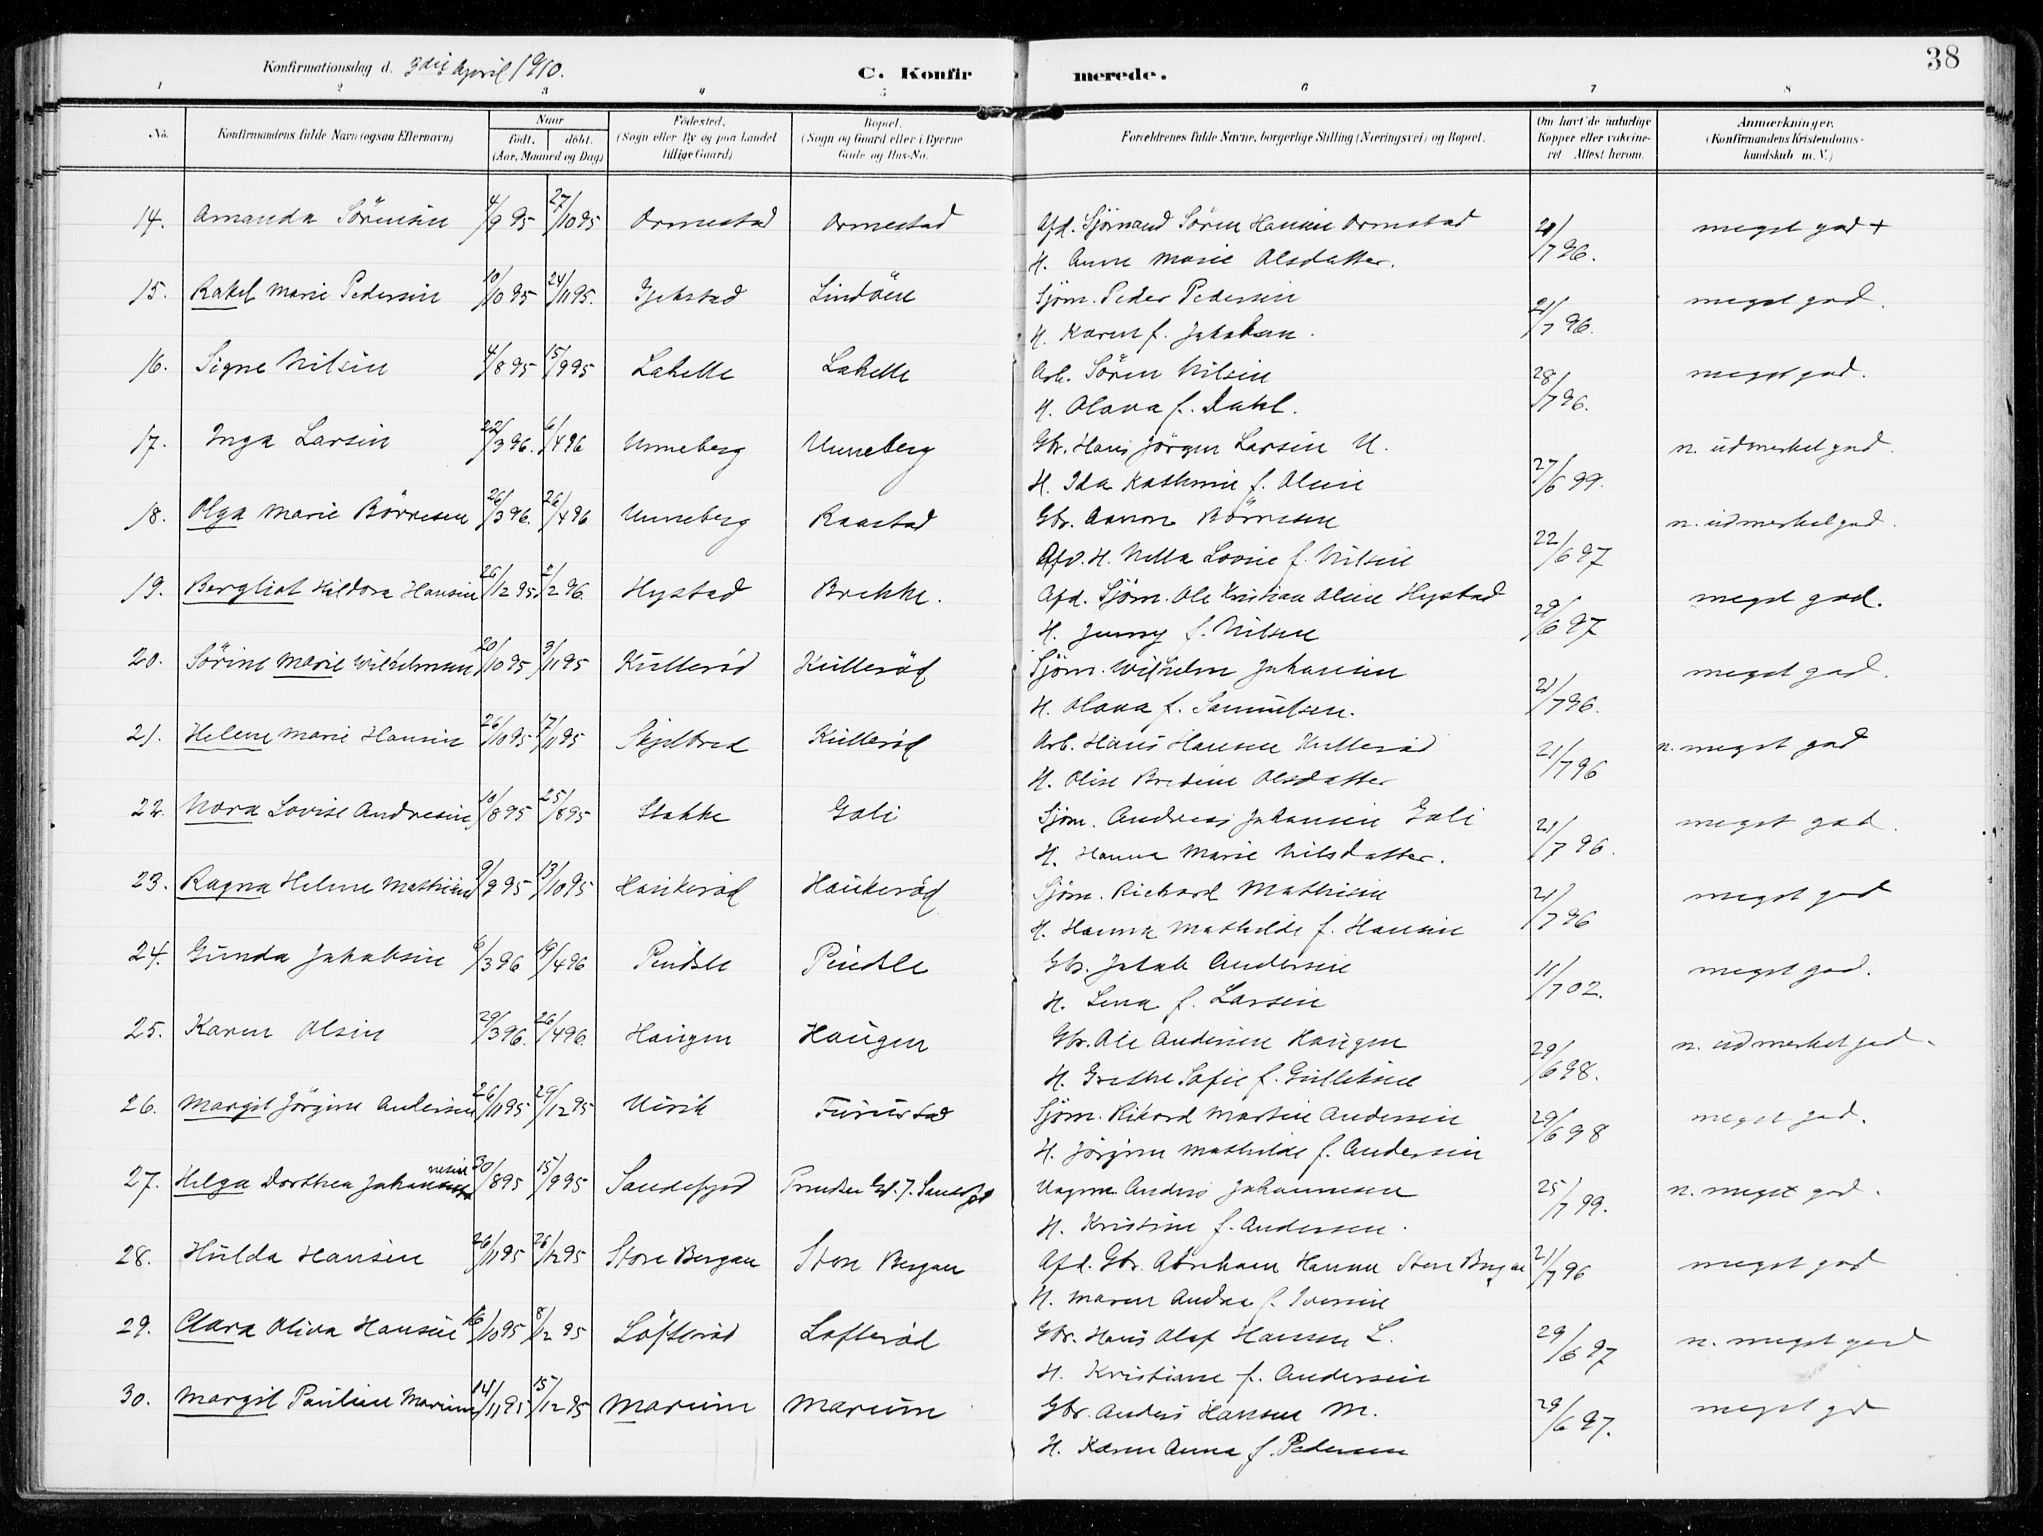 38
Konfirmationsdag d. 3die April 1910.
C. Konfirmerede.
1 2 3 4 5 6 7 8
No. Konfirmandens fulde Navn (ogsaa Efternavn) Naar født. døbt. (Aar, Maaned og Dag) Fødested. (Sogn eller By og paa Landet tillige Gaard) Bopæl. (Sogn og Gaard eller i Byerne Gade og Hus-No. Forældrenes fulde Navne, borgerlige Stilling (Næringsvei) og Bopæl. Om havt de naturlige Kopper eller vaccineret. Attest herom. Anmærkninger. (Konfirmandens Kristendomskundskab m. V.)
14. Amanda Sörensen 4/9 95 27/10 95 Ormestad Ormestad Afd. Sjömand Sören Hansen Ormestad 21/7 96. meget god +
H. Anne Marie Olsdatter.
15. Rakel Marie Pedersen 10/10 95 24/11 95. Gjekstad Lindöen Sjöm. Peder Pedersen 21/7 96. meget god.
H. Karen f. Jakobsen.
16. Signe Nilsen 4/8 95 15/9 95 Lakelle Lakelle Arb. Sören Nilsen 28/7 96. meget god.
H. Olava f. Dahl.
17. Inga Larsen 22/3 96. 6/4 96 Unneberg Unneberg Gbr. Hans Jörgen Larsen U. 27/6 99. n. udmerket god.
H. Ida Kathrine f. Olsen
18. Olga Marie Börresen 26/3 96. 26/4 96 Unneberg Raastad Gbr. Börresen 22/6 97 n. udmerket god.
Afd. H. Lovise f. Nilsen
19. Bergliot Haldora Hansen 26/12 95 2/2 96. Hystad Brekke. Afd. Sjöm. Ole Kristian Olsen Hystad 29/6 97 meget god.
H. Jenny f. Nilsen
20. Sörine Marie Wilhelmsen 20/10 95 3/11 95 Kulleröd Kulleröd Sjöm. Wilhelm Johansen 21/7 96. meget god.
H. Olava f. Samuelsen.
21. Helene Marie Hansen 26/10 95 17/11 95 Skjelbred Kulleröd Arb. Hans Hansen Kulleröd 21/7 96 n. meget god
H. Olise Bredine Olsdatter
22. Nora Lovise Andresen 10/8 95 25/8 95 Stakke Goli Sjöm. Andreas Johansen Goli 21/7 96. meget god.
H. Hanna Marie Nilsdatter.
23. Ragna Helene Mathisen 9/9 95 13/10 95 Haukeröd Haukeröd Sjöm. Richard Mathisen 21/7 96 meget god
H. Hanna Mathilde f. Hansen
24. Gunda Jakobsen 6/3 96 19/4 96 Pindsle Pindsle Gbr. Jakob Andersen 11/7 02. meget god.
H. Lena f. Larsen
25. Karen Olsen 29/3 96. 26/4 96. Haugen Haugen Gbr. Ole Andersen Haugen 29/6 98. n. udmerket god.
H. Grethe Sofie f. Gulliksen
26. Margit Jörgine Andersen 26/11 95 29/12 95 Virik Furustad Sjöm. Rikard Martin Andersen 29/6 98 meget god.
H. Jörgine Mathilde f. Andersen
27. Helga Dorthea Johannesen 30/8 95 15/9 95 Sandefjord Sandefjord Anders Johannesen 25/7 99. n. meget god.
H. Kristine f. Andersen.
28. Hulda Hansen 26/11 95 26/12 95 Store Bergan Store Bergan Afd. Gbr. Abraham Hansen Store Bergan 21/7 96 meget god
H. Maren Andrea f. Iversen
29. Clara Oliva Hansen 16/10 95 8/12 95 Löfteröd Lofteröd Gbr. Hans Olaf Hansen L. 29/6 97 n. meget god
H. Kristiane f. Andersen
30. Margit Pauline Marum 14/11 95 15/12 95 Marum Marum Gbr. Anders Hansen M. 29/6 97. meget gd
H. Karen Anna f. Pedersen